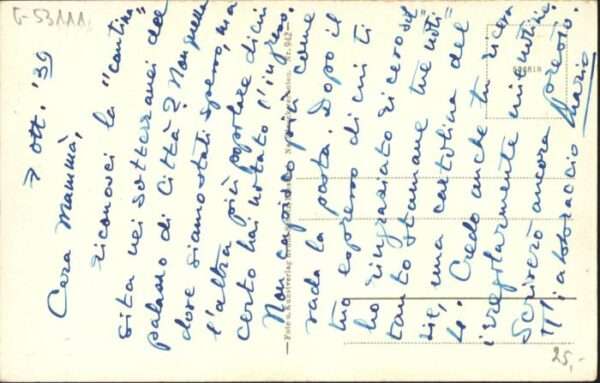 G-53111
7 ott. '39
Cara Mammà,
riconosci la "cantina"
sita nei sotterranei del
palazzo di Città? Non quella
dove siamo stati spesso, ma
l'altra più popolare di cui
certo hai notato l'ingresso.
Non capisco più come
vada la posta. Dopo il
tuo espresso di cui ti
ho ringraziato ricevo sol
tanto stamane tue noti
zie, una cartolina del
4. Credo anche tu riceva
irregolarmente mie notizie.
Scriverò ancora presto.
Ti abbraccio Mario
Foto u. Kunstverlag
Nr. 942
25,-